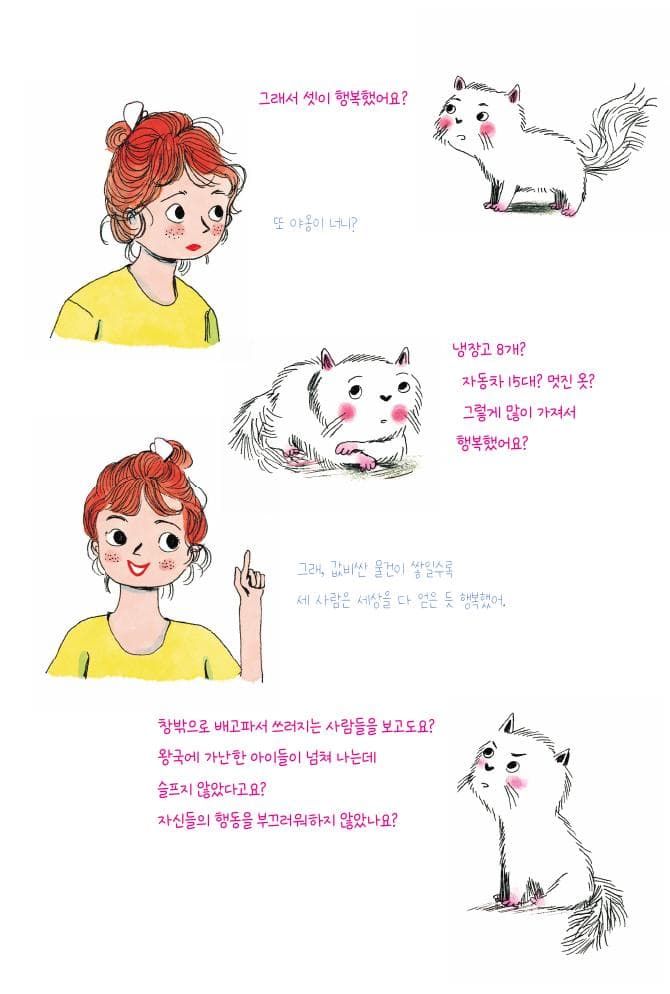 그래서 셋이 행복했어요?
또 야옹이 너니?
냉장고 8개?
자동차 15대? 멋진 옷?
그렇게 많이 가져서
행복했어요?
그래, 값비싼 물건이 쌓일수록
세 사람은 세상을 다 얻은 듯 행복했어.
창밖으로 배고파서 쓰러지는 사람들을 보고도요?
왕국에 가난한 아이들이 넘쳐 나는데
슬프지 않았다고요?
자신들의 행동을 부끄러워하지 않았나요?